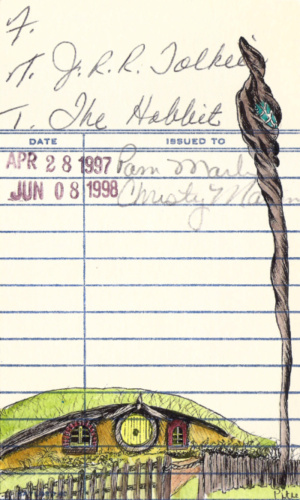 F.
A. J.R.R. Tolkein
T. The Hobbit
DATE ISSUED TO
APR 28 1997 Pam
JUN 08 1998 Christy